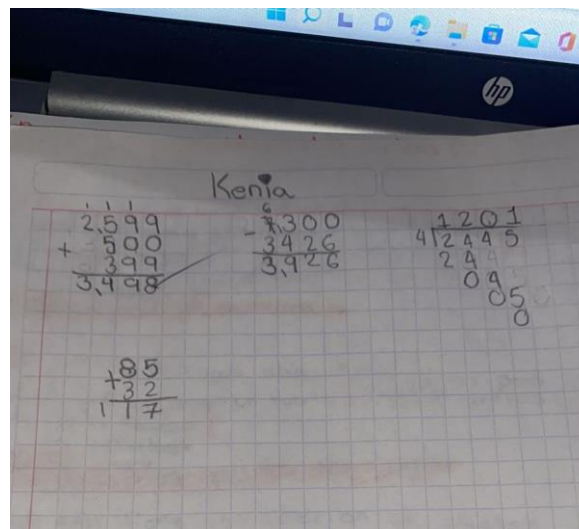 hp
Kenia
1 1 1
2,599
+ 500
399
3,498
6
- 7,300
3426
3,926
1201
4 2445
24
04
05
0
+85
32
117